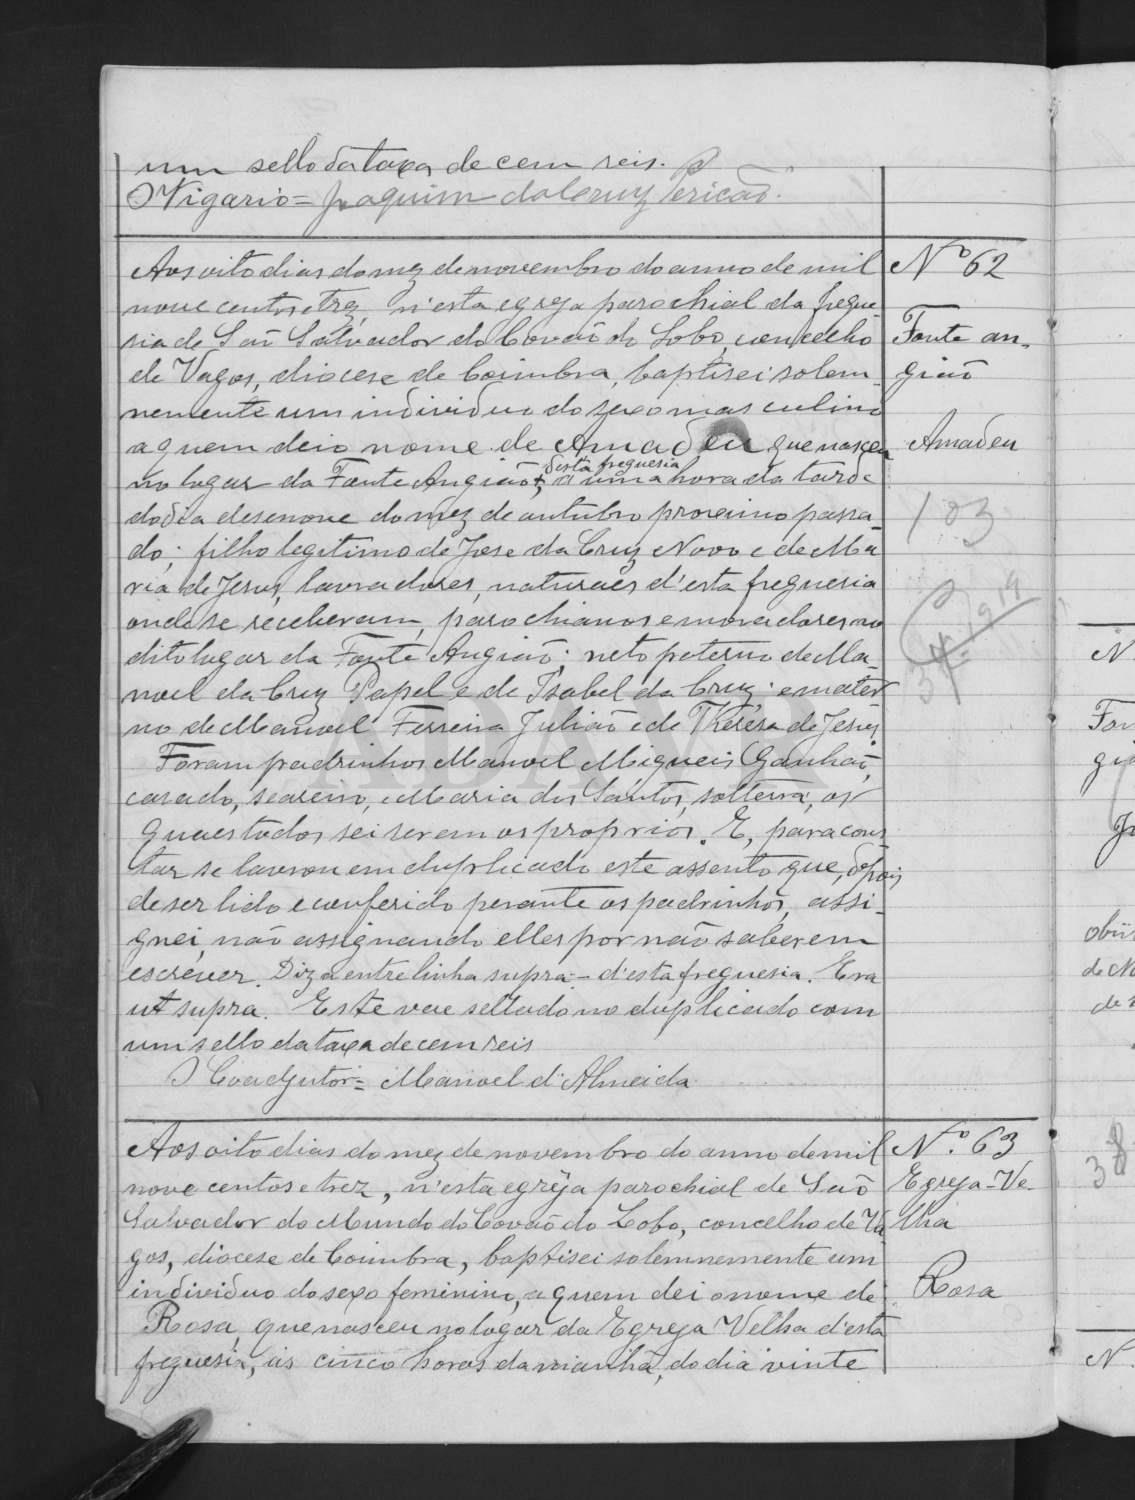 um sello da taxa de cem reis.
O Vigario = Joaquim da Cruz Pericão.
Aos oito dias do mez de novembro do anno de mil
nove centos e trez, n'esta egreja parochial da fregue-
sia de São Salvador do Covão do Lobo, concelho
de Vagos, diocese de Coimbra, baptisei solem-
nemente um individuo do sexo masculino
a quem dei o nome de Amadeu que nasceu
desta freguesia
no logar da Fonte Angião, á uma hora da tarde
do dia desenove do mez de outubro proximo passa-
do; filho legitimo de Jose da Cruz Novo e de Ma-
ria de Jesus, lavradores, naturaes d'esta freguesia
onde se receberam, parochianos e moradores no
dito logar da Fonte Angião; neto paterno de Ma-
noel da Cruz Papel e de Isabel da Cruz; e mater-
no de Manoel Ferreira Julião e de Thereza de Jesus.
Foram padrinhos Manoel Migueis Ganhão,
casado, seareiro, e Maria dos Santos, solteira, os
quaes todos sei serem os proprios. E, para cons-
tar se lavrou em duplicado este assento que, depois
de ser lido e conferido perante os padrinhos, assi-
gnei, não assignando elles por não saberem
escrever. Diz a entrelinha supra - d'esta freguesia. Era
ut supra. Este vae sellado no duplicado com
um sello da taxa de cem reis
O Coadjutor = Manoel d'Almeida
Nº 62
Fonte an-
gião
Amadeu
103
1919
Aos oito dias do mez de novembro do anno de mil
nove centos e trez, n'esta egreja parochial de São
Salvador do Mundo do Covão do Lobo, concelho de Va
gos, diocese de Coimbra, baptisei solemnemente um
individuo do sexo feminino, a quem dei o nome de
Rosa, que nasceu no logar da Egreja Velha d'esta
freguesia, ás cinco horas da manhã, do dia vinte
Nº. 63
Egreja-Ve-
lha
Rosa
N
Fon
giã
Jo
obiit
de No
38
N.